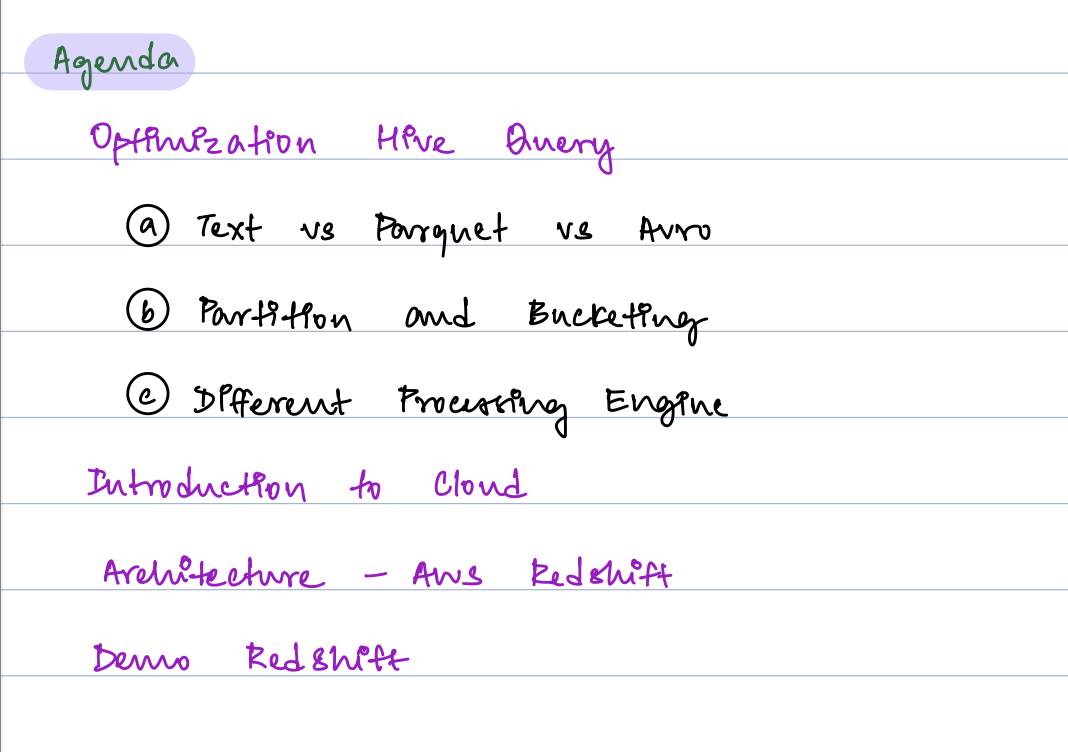 Agenda
Optimization Hive Query
a Text vs Parquet vs Avro
b Partition and Bucketing
c Different Processing Engine
Introduction to Cloud
Architecture - Aws Redshift
Demo Redshift